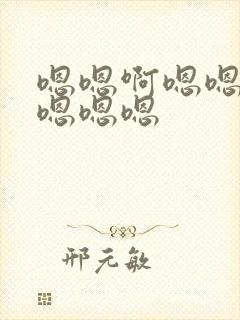 嗯嗯啊嗯嗯
嗯嗯嗯
邢元敏